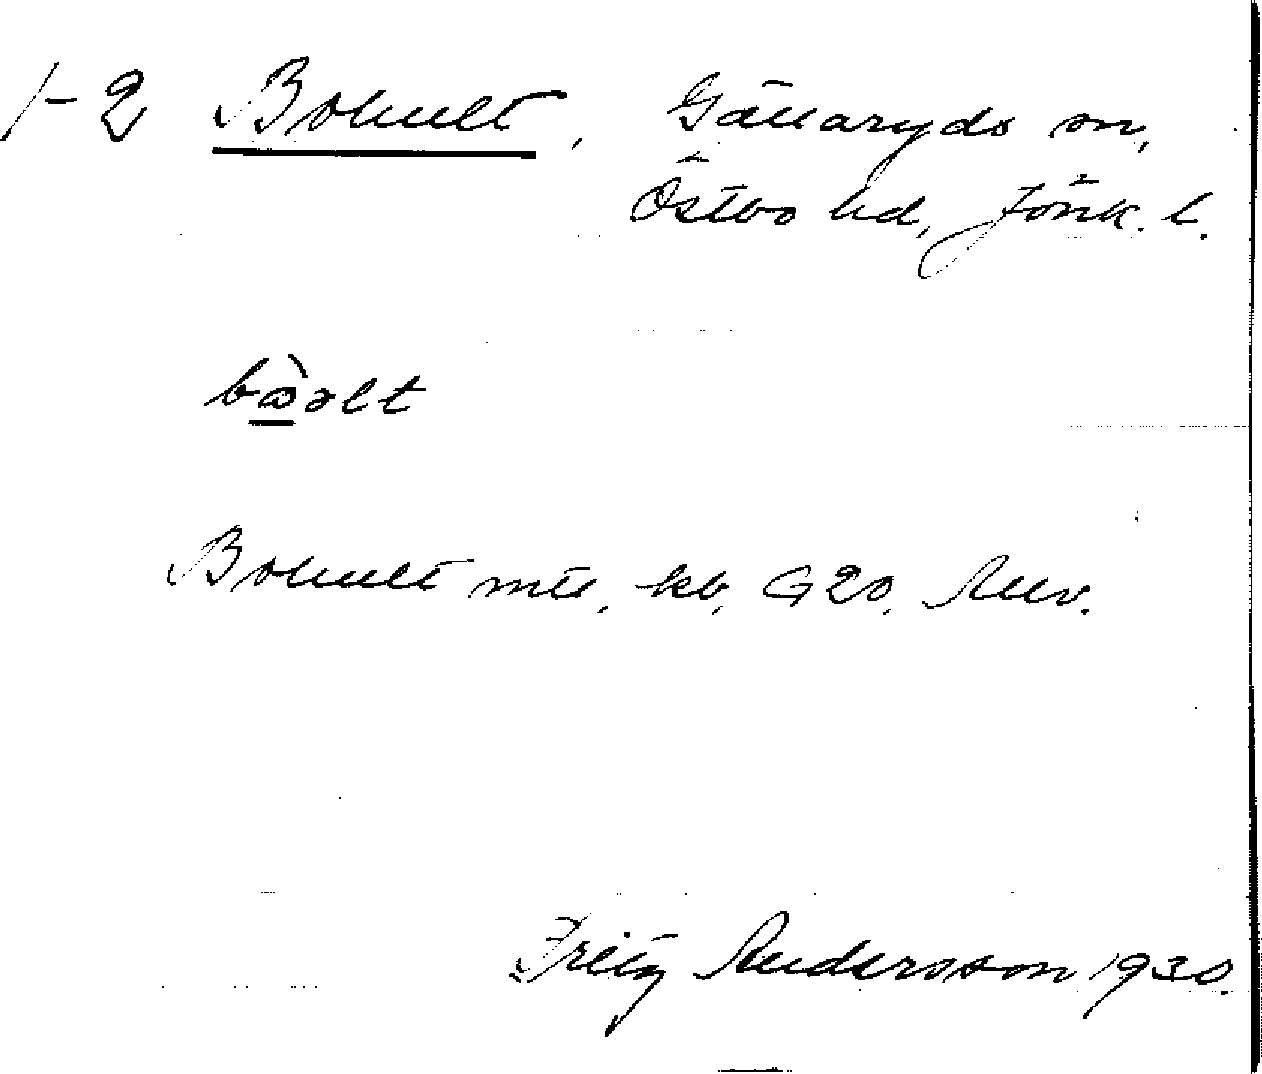 1-2 Bohult, Gällaryds sn,
Östbo hd, Jönk. l.
bὼəlt
Bohult mtl, kb, G20,
Fritz Andersson 1930.